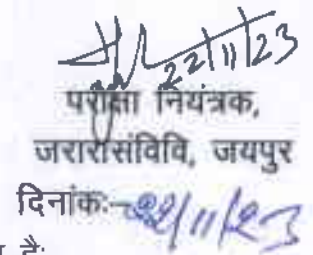 22/11/23
परीक्षा नियंत्रक,
जरारासंविवि, जयपुर
दिनांक:-22/11/23
है: